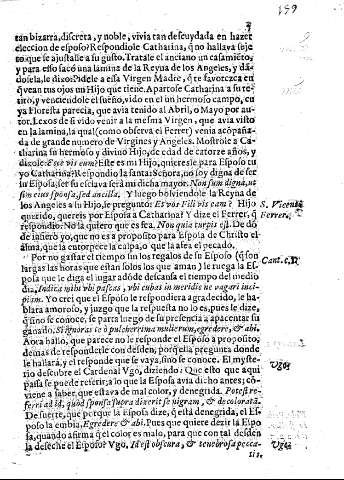 199
3
tan bizarra, discreta, y noble, vivia tan descuydada en hazer
eleccion de esposo? Respondiole Catharina, q̃ no hallava suje
to que se ajustasse a su gusto. Tratale el anciano un casamiẽto,
y para esso sacó una lamina de la Reyna de los Angeles, y dã-
dosela, le dixo: Pidele a essa Virgen Madre, q̃ te favorezca en
q̃ vean tus ojos un Hijo que tiene. Apartose Catharina a su re-
tiro, y venciendole el sueño, vido en él un hermoso campo, cu
ya Floresta parecia, que avia tenido al Abril, o Mayo por au-
tor. Lexos de sí vido venir a la mesma Virgen, que avia visto
en la lamina, la qual (como observa el Ferrer) venia acõpaña-
da de grande numero de Virgines y Angeles. Mostròle a Ca-
tharina su hermoso y divino Hijo, de edad de catorze años, y
dixole: Este es mi Hijo, quieresle para Esposo tu
yo Catharina? Respondio la santa: Señora, no soy digna de ser
su Esposa, ser su esclava será mi dicha mayor. Non sum digna, ut
sim eius sponsa, sed ancilla. Y luego bolviendole la Reyna de
los Angeles a su Hijo, le preguntò: Et vos Fili vis eam? Hijo
querido, quereis por Esposa a Catharina? Y dize el Ferrer, q̃
respondio: No la quiero que es fea. Non quia turpis est. De dõ
de infiero yo, que no es a proposito para Esposa de Christo el
alma, que la entorpece la culpa, o que la afea el pecado.
S. Vicente
Ferrer.
Por no gastar el tiempo sin los regalos de su Esposo (q̃ son
largas las horas que estan solos los que aman) le ruega la Es
posa que le diga el lugar adõde descansa el tiempo del medio
dia, Indica mihi ubi pascas, ubi cubas in meridie ne vagari inci-
piam. Yo creí que el Esposo le respondiera agradecido, le ha-
blara amoroso, y juzgo que la respuesta no lo es, pues le dize,
q̃ si no se conoce, se parta luego de su presencia a apacentar su
ganado. Si ignoras te ò pulcherrima mulierum, egredere, & abi.
Aora hallo, que parece no le responde el Esposo a proposito;
demas de responderle con desden, porq̃ ella pregunta donde
le hallará, y el responde que se vaya, sino se conoce. El myste-
rio descubre el Cardenal Ugo, diziendo: Que esto que aqui
passa se puede referir, a lo que la Esposa avia dicho antes; cõ-
viene a saber, que estava de mal color, y denegrida. Potest re-
ferri ad id, quod sponsa supra dixerit se nigram, & decoloratã.
De suerte, que porque la Esposa dize, q̃ está denegrida, el Es-
poso la embia, Egredere, & abi. Pues que quiere dezir la Espo
sa, quando afirma q̃ el color es malo, para que con tal desden
la deseche el Esposo? Ugo, Id est obscura, & tenebrosa pecca-
Cant. c. 1.
Ugo.
iii.